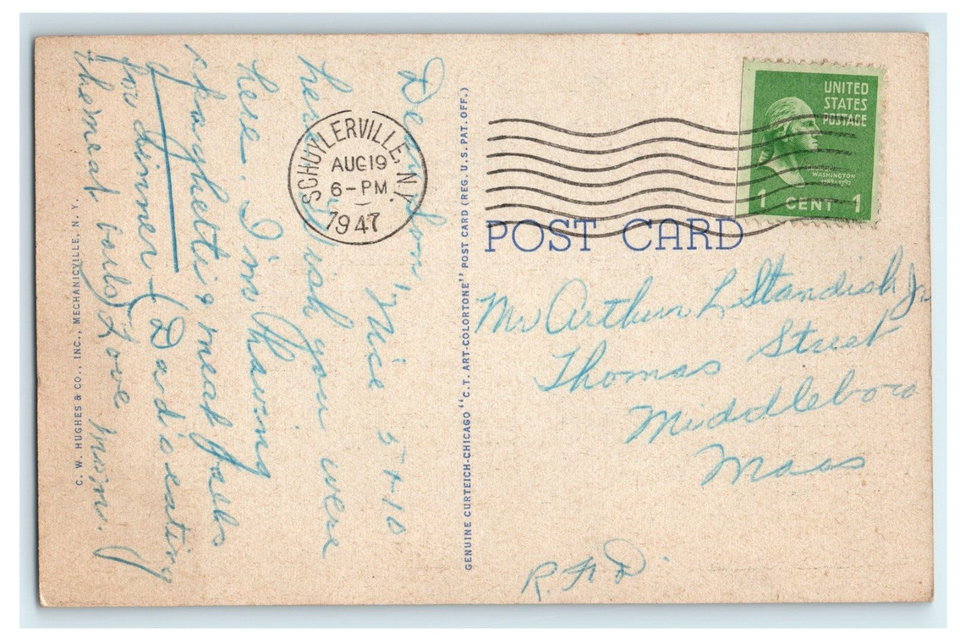 Dear Son, "Nice 5 + 10
here. Wish you were
here. I'm having
spaghetti & meat balls
for dinner (Dad's eating
the meat balls) Love Mom.
C. W. HUGHES & CO., INC., MECHANICVILLE, N. Y.
GENUINE CURTEICH-CHICAGO "C.T. ART-COLORTONE" POST CARD (REG. U.S. PAT. OFF.)
SCHUYLERVILLE, N.Y.
AUG 19
6-PM
1947
UNITED
STATES
POSTAGE
WASHINGTON
1 CENT 1
POST CARD
Mr Arthur L Standish Jr
Thomas Street
Middleboro
Mass
R. F. D.